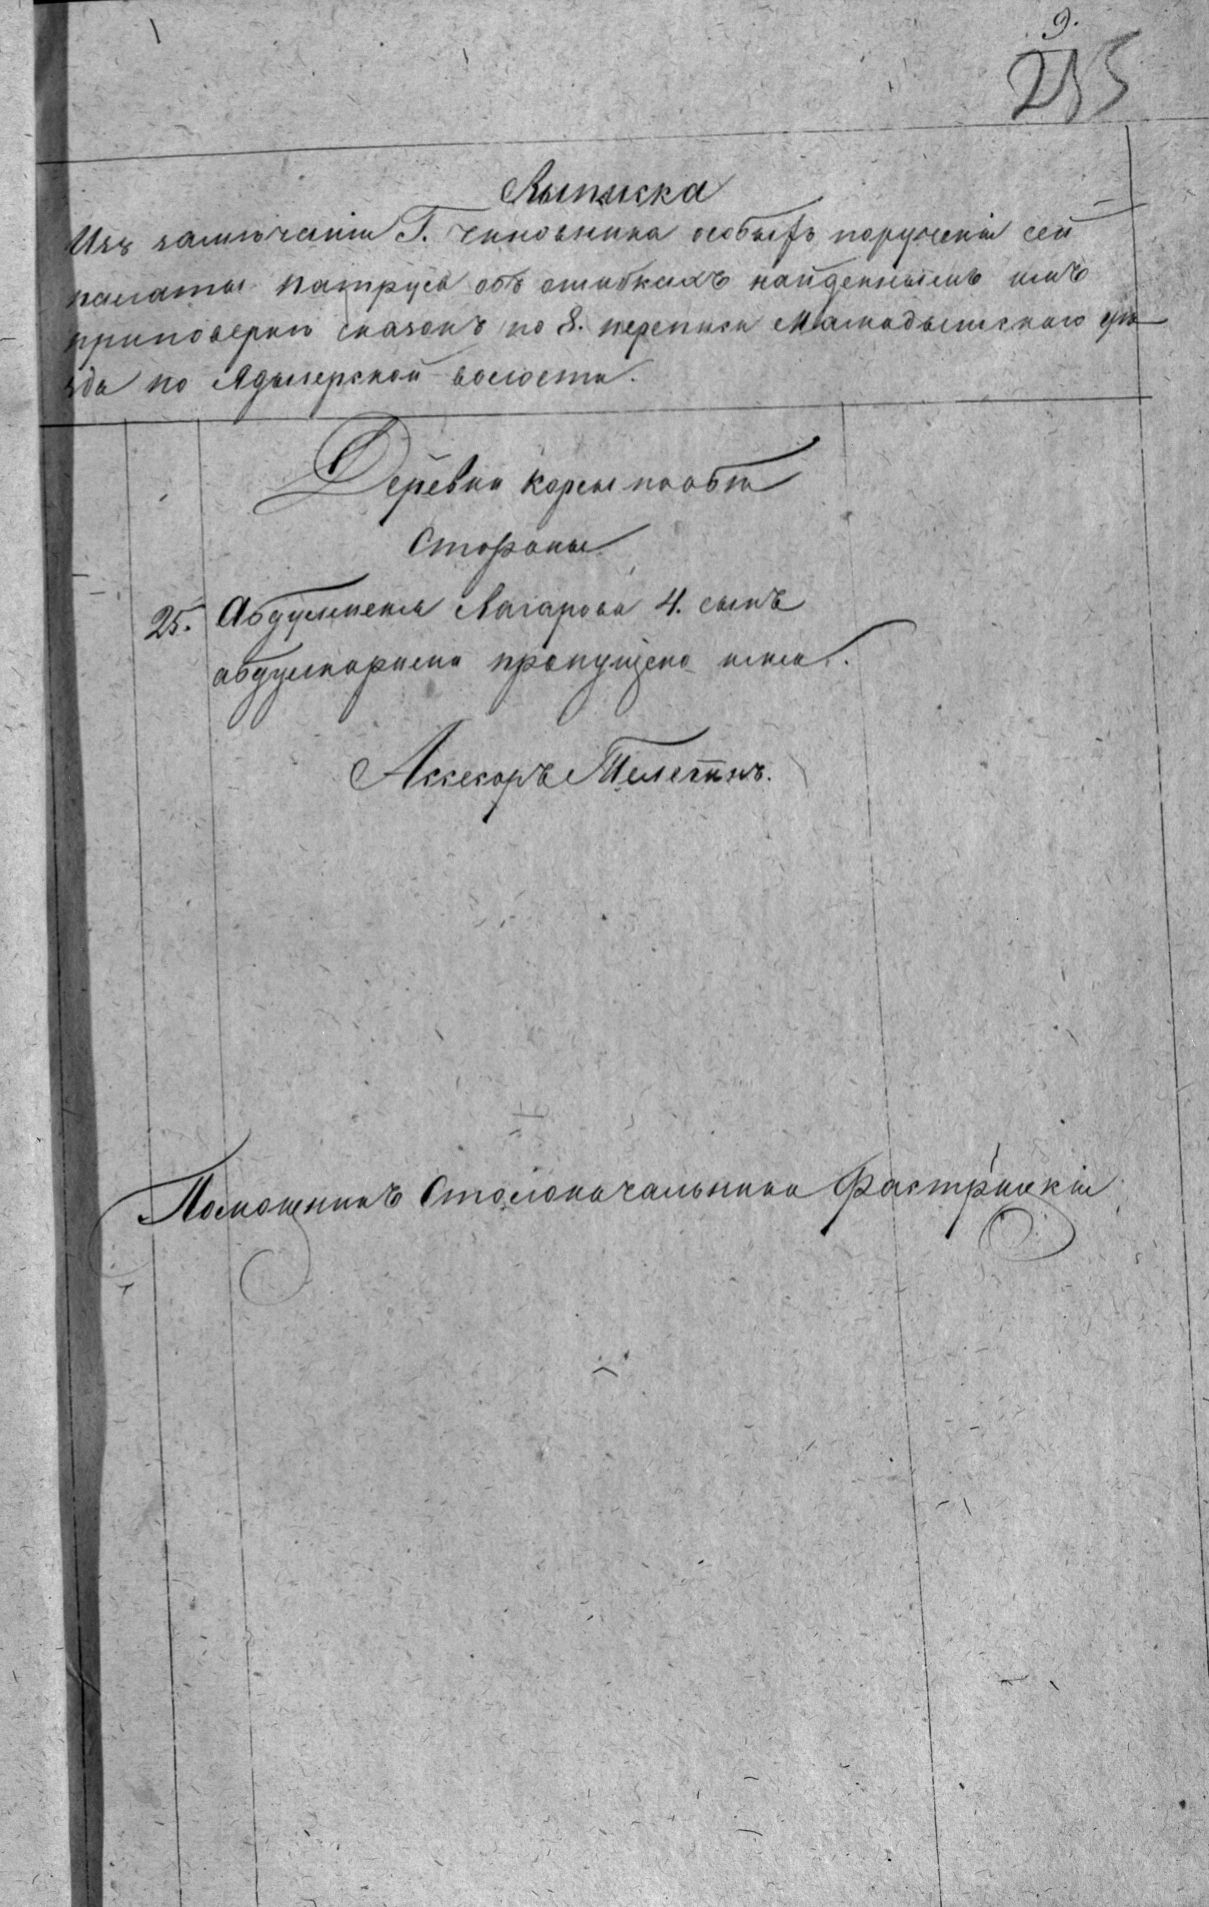 9.
255
Выписка
Изъ замѣчаніи Г. Чиновника особыхъ порученіи сей
палаты Патруева объ ошибкахъ найденныхъ имъ
приповеркѣ сказокъ по 8. переписи Мамадышскаго уѣ
зда по Адыерской волости.
Деревни Корсы пообѣ
Стороны
25. Абдулменя Нагарова 4. сынъ
абдулкарима пропущено имя.
Ассесоръ Телегинъ.
Помошникъ Столоначальника